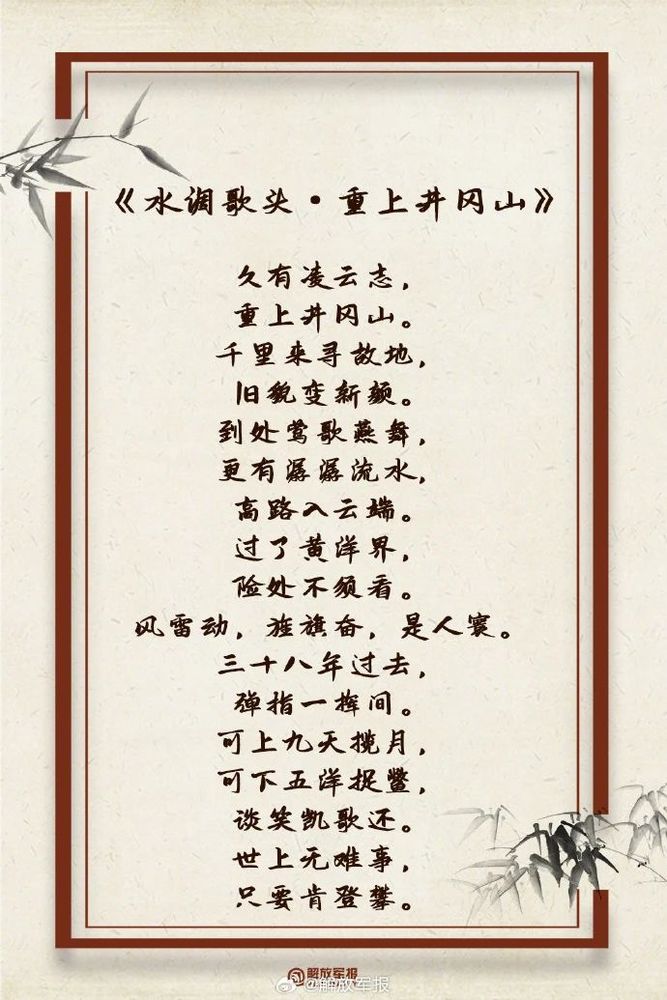 《水调歌头·重上井冈山》
久有凌云志，
重上井冈山。
千里来寻故地，
旧貌变新颜。
到处莺歌燕舞，
更有潺潺流水，
高路入云端。
过了黄洋界，
险处不须看。
风雷动，旌旗奋，是人寰。
三十八年过去，
弹指一挥间。
可上九天揽月，
可下五洋捉鳖，
谈笑凯歌还。
世上无难事，
只要肯登攀。
解放军报
@解放军报